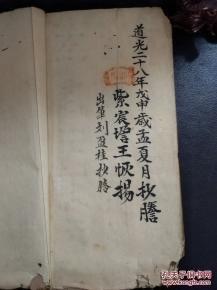 道光二十八年戊申歲孟夏月抄謄
紫宸壇王恢揚
出筆刘盈桂抄謄